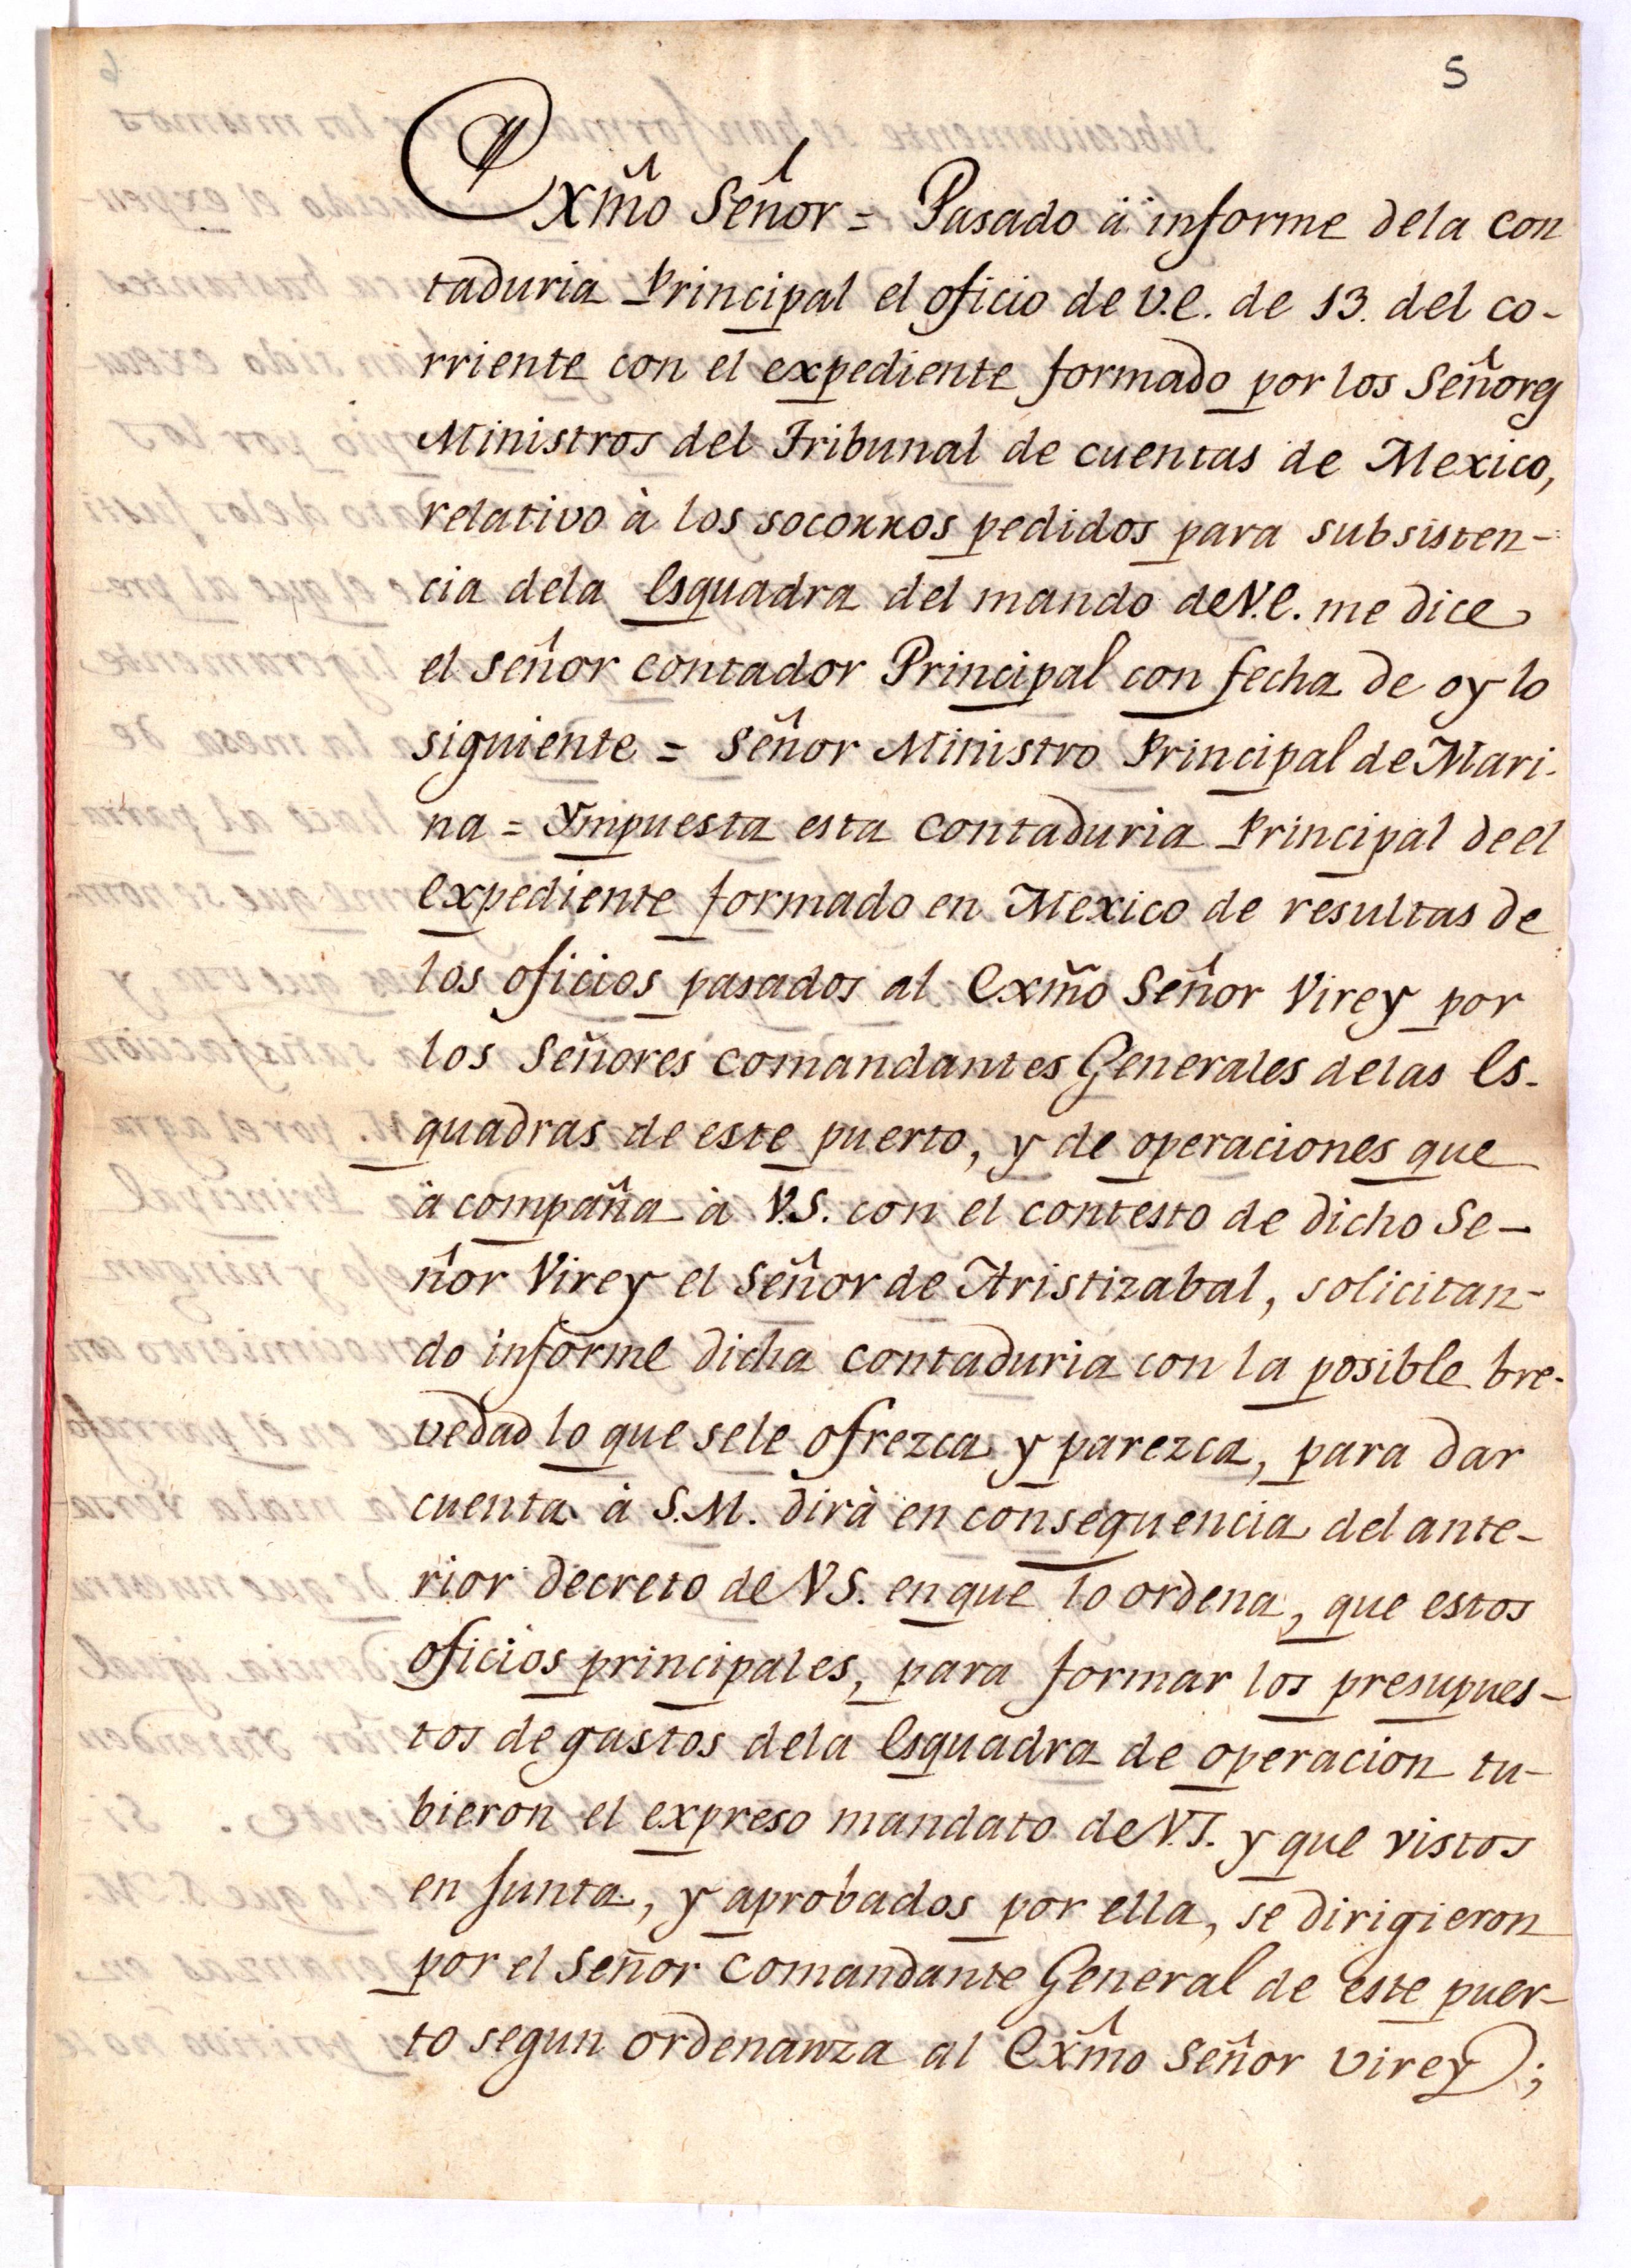 5
Exmõ Señor = Pasado â informe dela con
taduria Principal el oficio de V.E. de 13. del co-
rriente con el expediente formado por los Señores
Ministros del Tribunal de cuentas de Mexico,
relativo à los socorros pedidos para subsisten-
cia dela Esquadra del mando de V.E. me dice
el señor contador Principal con fecha de oy lo
siguiente = Señor Ministro Principal de Mari-
na = Ympuesta esta contaduria Principal de el
expediente formado en Mexico de resultas de
los oficios pasados al Exmõ Señor Virey por
los Señores comandantes Generales delas Es-
quadras de este puerto, y de operaciones que
â compaña à V.S. con el contesto de dicho Se-
ñor Virey el Señor de Aristizabal, solicitan-
do informe dicha contaduria con la posible bre-
vedad lo que sele ofrezca y parezca, para dar
cuenta à S.M. dirà en consequencia del ante-
rior decreto de V.S. en que lo ordena, que estos
oficios principales, para formar los presupues-
tos de gastos dela Esquadra de operacion tu-
bieron el expreso mandato de V.S. y que vistos
en Junta, y aprobados por ella, se dirigieron
por el Señor comandante General de este puer-
to segun ordenanza al Exmõ Señor virey;